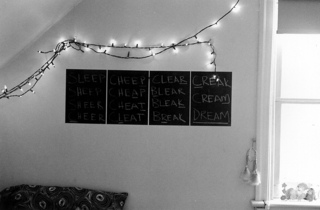 SLEEP
SHEEP
SHEER
CHEER
CHEEP
CHEAP
CHEAT
CLEAT
CLEAR
BLEAR
BLEAK
BREAK
CREAK
CREAM
DREAM